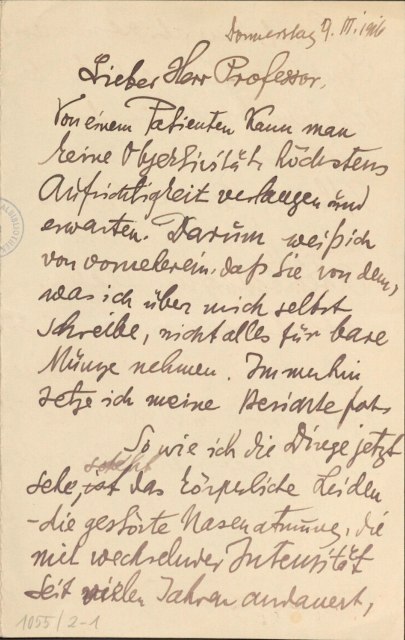 Donnerstag 9. III. 1916
Lieber Herr Professor,
Von einem Patienten kann man
keine Objektivität, höchstens
Aufrichtigkeit verlangen und
erwarten. Darum weiß ich
von vorneherein, daß Sie von dem,
was ich über mich selbst
schreibe, nicht alles für bare
Münze nehmen. Immerhin
setze ich meine Berichte fort.
So wie ich die Dinge jetzt
sehe, scheint das körperliche Leiden
- die gestörte Nasenatmung, die
mit wechselnder Intensität
seit vielen Jahren andauert,
1055/2-1